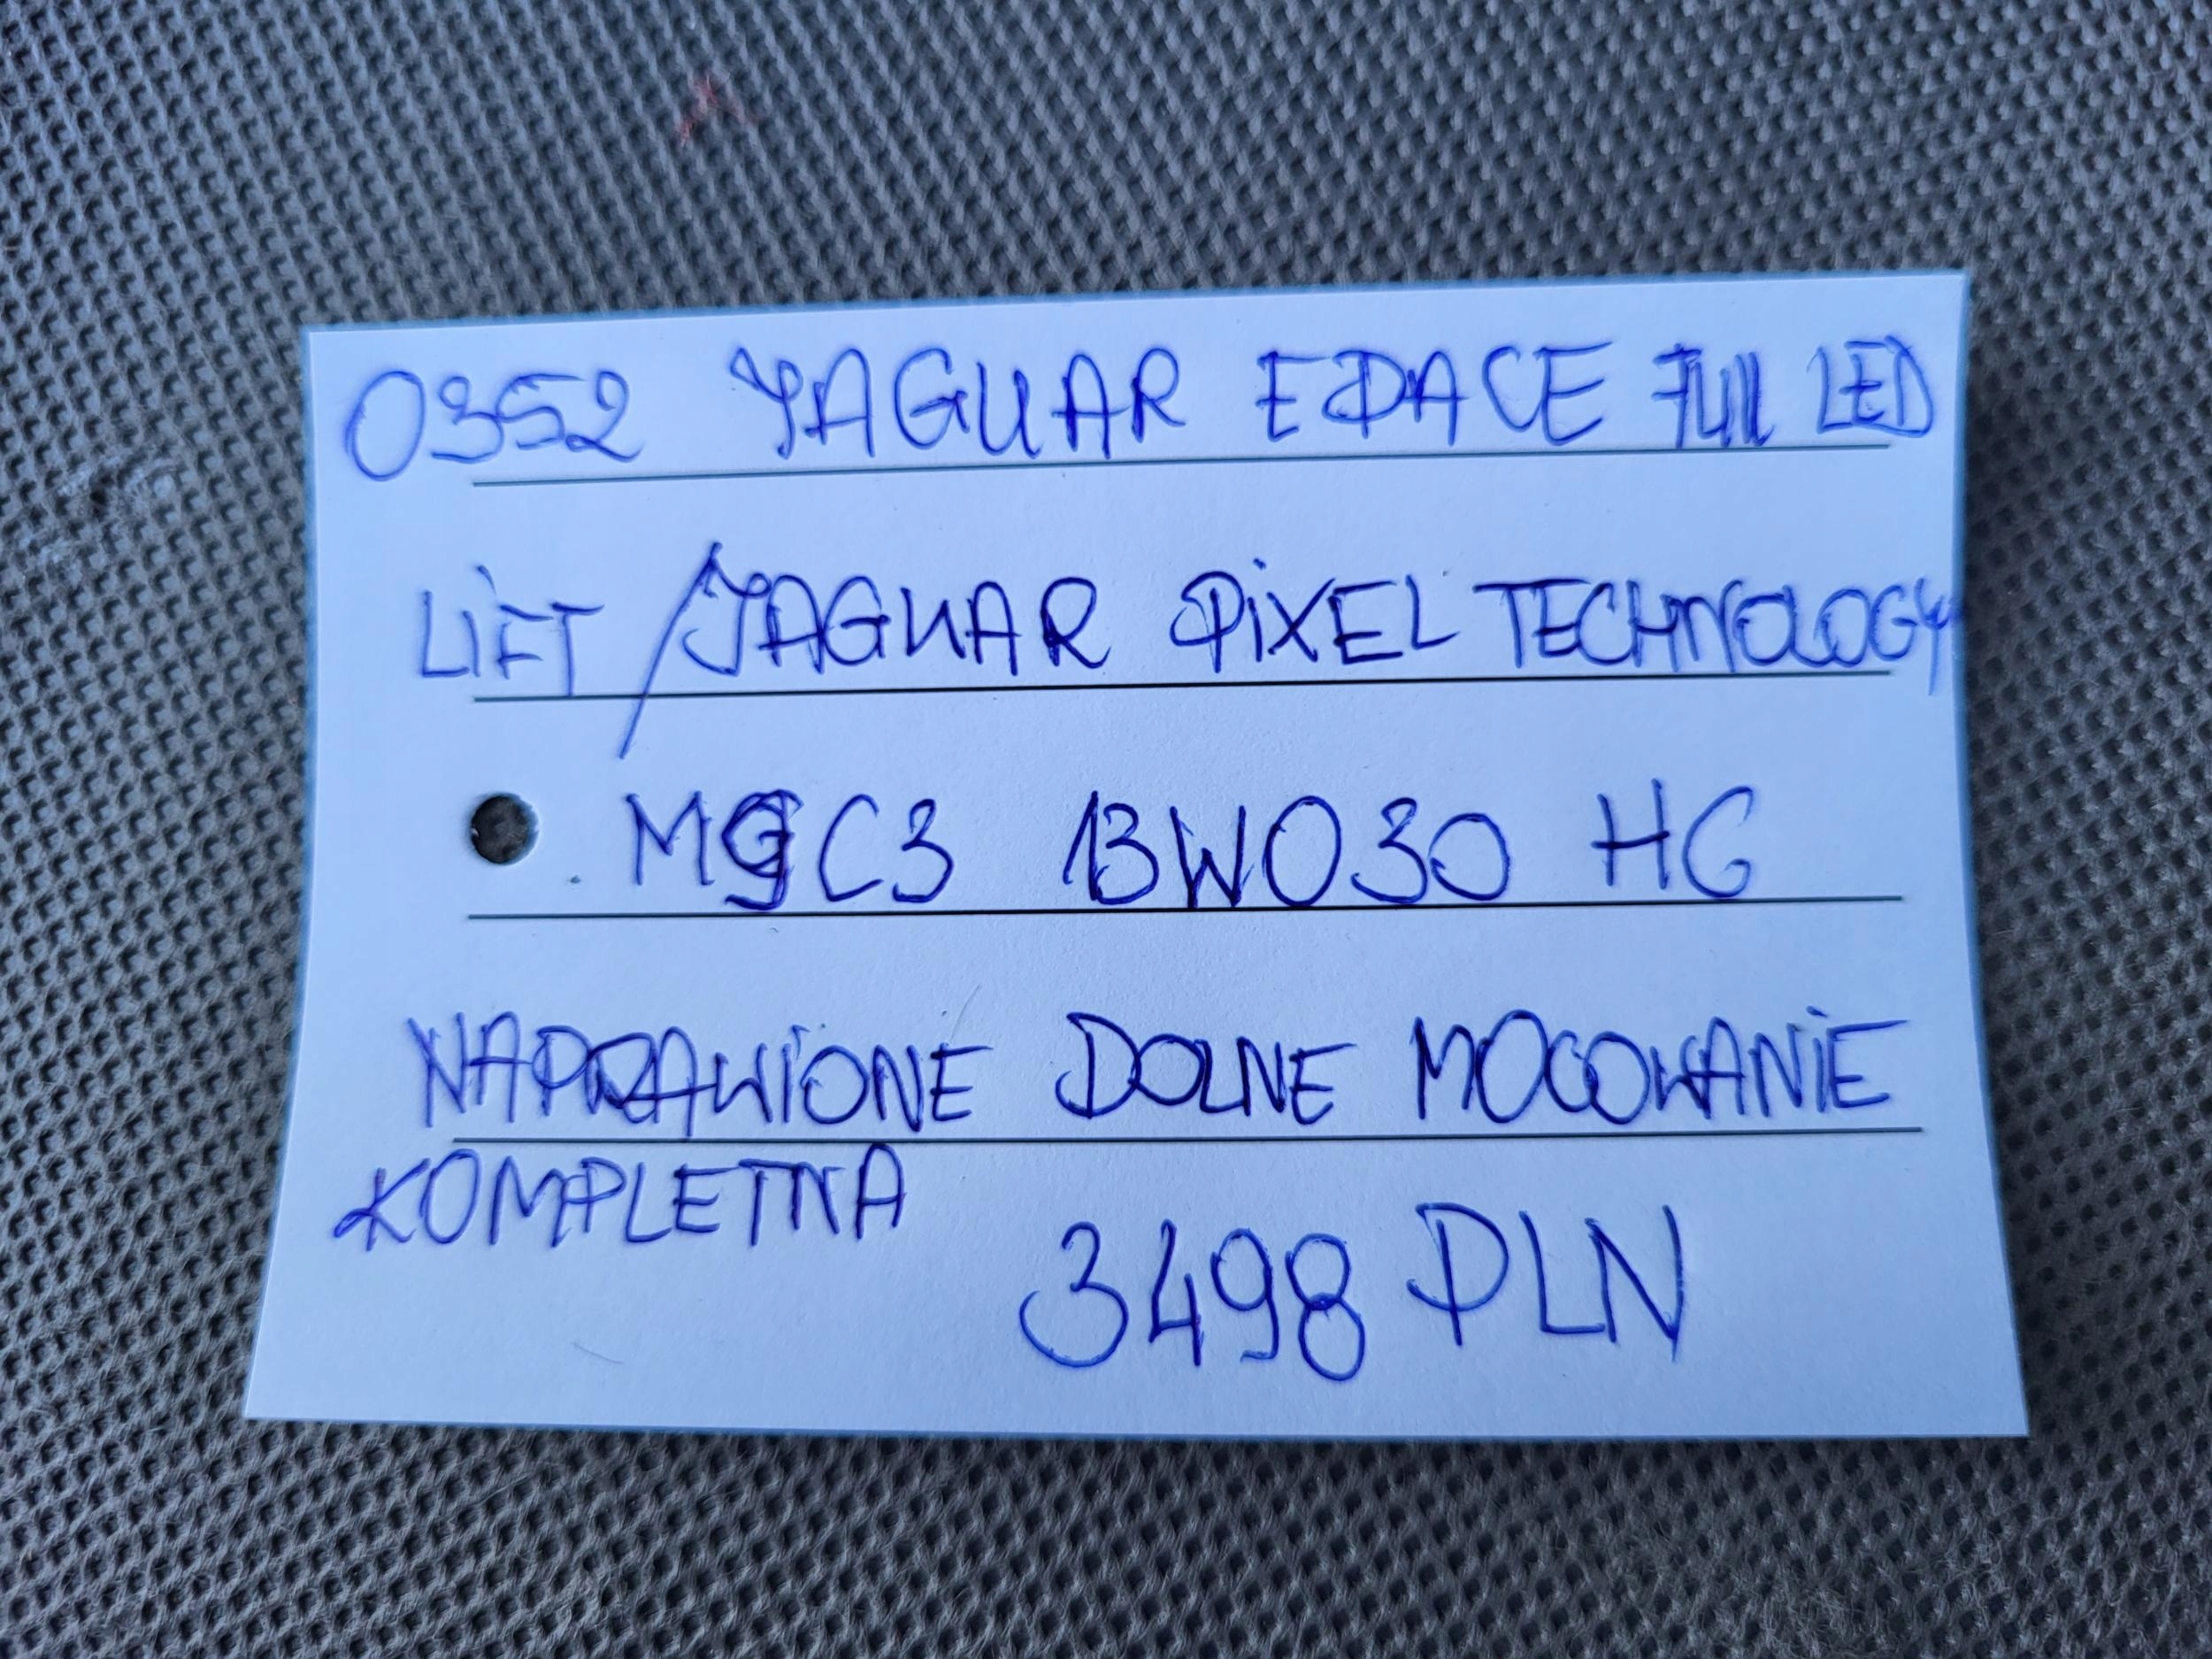 0352 JAGUAR EPACE FULL LED
LIFT / JAGUAR PIXEL TECHNOLOGY
M9C3 13W030 HG
NAPRAWIONE DOLNE MOCOWANIE
KOMPLETNA
3498 PLN